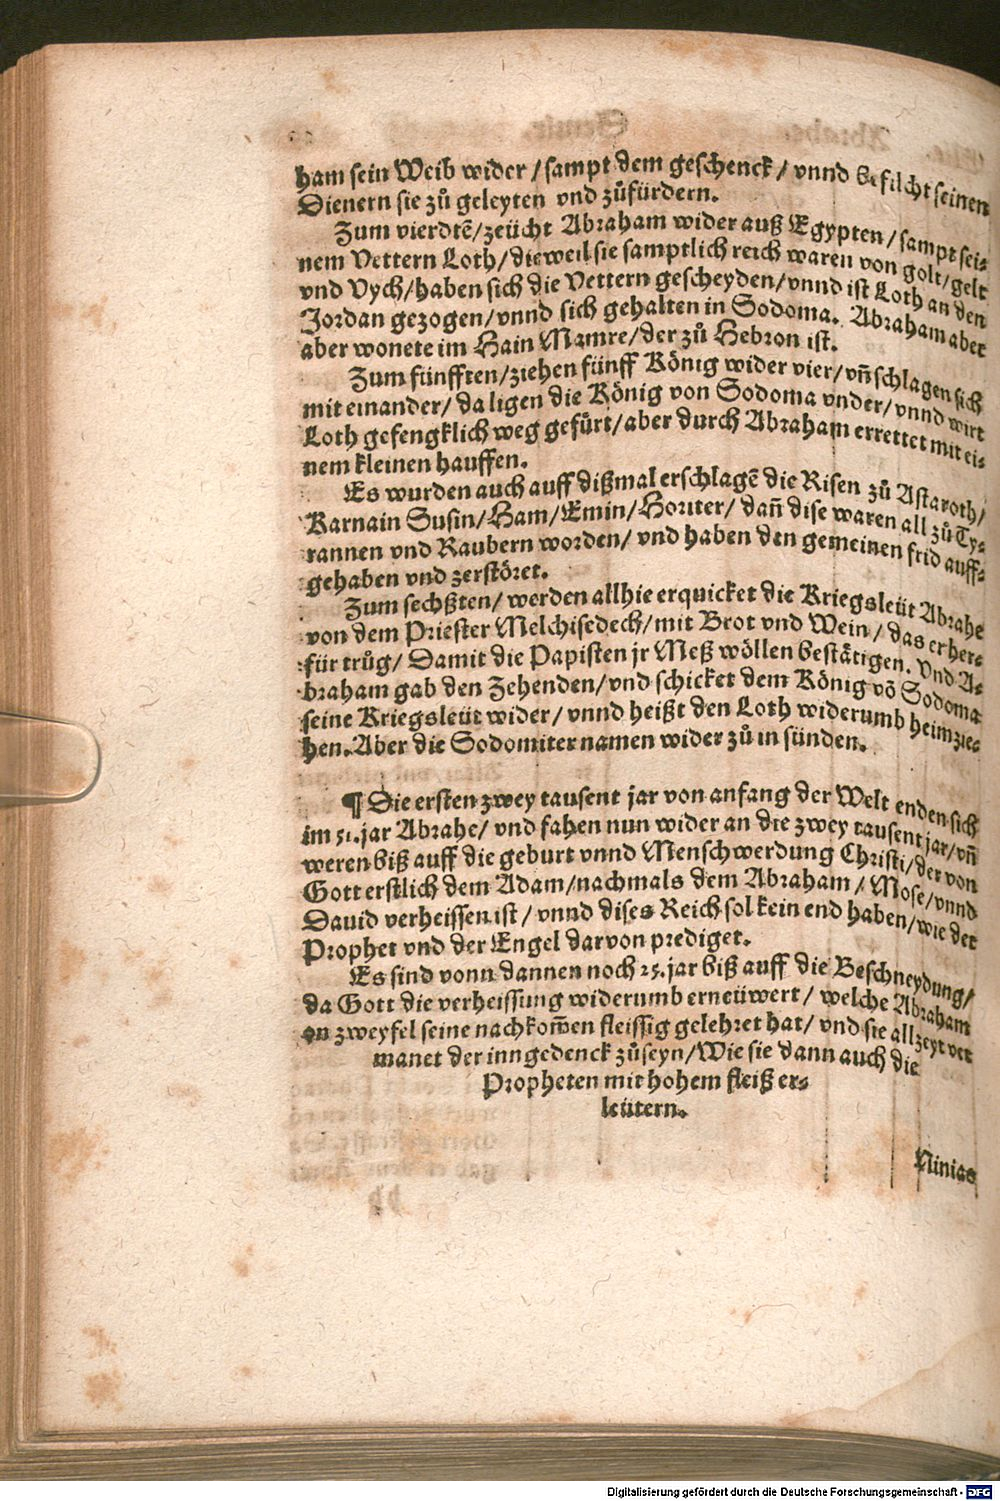 ham sein Weib wider / sampt dem geschenck / vnnd befilcht seinen
Dienern sie zů geleyten vnd zůfürdern.
Zum vierdtẽ / zeücht Abraham wider auß Egypten / sampt sei-
nem Vettern Loth / dieweil sie samptlich reich waren von golt / gelt
vnd Vych / haben sich die Vettern gescheyden / vnnd ist Loth an den
Jordan gezogen / vnnd sich gehalten in Sodoma. Abraham aber
aber wonete im Hain Mamre / der zů Hebron ist.
Zum fünfften / ziehen fünff König wider vier / vñ schlagen sich
mit einander / da ligen die König von Sodoma vnder / vnnd wirt
Loth gefengklich weg gefürt / aber durch Abraham errettet mit ei-
nem kleinen hauffen.
Es wurden auch auff dißmal erschlagẽ die Risen zů Astaroth /
Karnain Susin / Ham / Emin / Horiter / dañ dise waren all zů Ty-
rannen vnd Raubern worden / vnd haben den gemeinen frid auff-
gehaben vnd zerstöret.
Zum sechßten / werden allhie erquicket die Kriegsleüt Abrahe
von dem Priester Melchisedech / mit Brot vnd Wein / das er her-
für trůg / Damit die Papisten jr Meß wöllen bestätigen. Vnd A-
braham gab den Zehenden / vnd schicket dem König võ Sodoma
seine Kriegsleüt wider / vnnd heißt den Loth widerumb heimzie-
hen. Aber die Sodomiter namen wider zů in sünden.
¶ Die ersten zwey tausent jar von anfang der Welt enden sich
im 51. jar Abrahe / vnd fahen nun wider an die zwey tausent jar / vñ
weren biß auff die geburt vnnd Menschwerdung Christi / der von
Gott erstlich dem Adam / nachmals dem Abraham / Mose / vnnd
Dauid verheissen ist / vnnd dises Reich sol kein end haben / wie der
Prophet vnd der Engel darvon prediget.
Es sind vonn dannen noch 25. jar biß auff die Beschneydung /
da Gott die verheissung widerumb erneüwert / welche Abraham
on zweyfel seine nachkom̃en fleissig gelehret hat / vnd sie allzeyt ver
manet der inngedenck zůseyn / Wie sie dann auch die
Propheten mit hohem fleiß er-
leütern.
Ninias
Digitalisierung gefördert durch die Deutsche Forschungsgemeinschaft - DFG